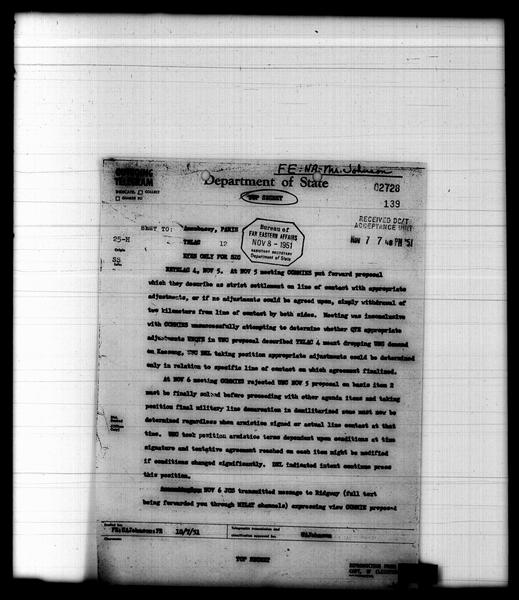 FE:NA:Mr. Johnson
OUTGOING
TELEGRAM
INDICATE: COLLECT
CHARGE TO
Department of State
TOP SECRET
02728
139
RECEIVED DC/T
ACCEPTANCE UNIT
NOV 7 7 PM '51
SENT TO: Amembassy, PARIS
TELAC 12
EYES ONLY FOR SEC
Bureau of
FAR EASTERN AFFAIRS
NOV 8 - 1951
ASSISTANT SECRETARY
Department of State
25-H
Origin
SS
Info:
RETELAC 4, NOV 5. At NOV 5 meeting COMMIES put forward proposal
which they describe as strict settlement on line of contact with appropriate
adjustments, or if no adjustments could be agreed upon, simply withdrawal of
two kilometers from line of contact by both sides. Meeting was inconclusive
with COMMIES unsuccessfully attempting to determine whether QTE appropriate
adjustments UNQTE in UNC proposal described TELAC 4 meant dropping UNC demand
on Kaesong, UNC DEL taking position appropriate adjustments could be determined
only in relation to specific line of contact on which agreement finalized.
At NOV 6 meeting COMMIES rejected UNC NOV 5 proposal on basis item 2
must be finally solved before proceeding with other agenda items and taking
position final military line demarcation in demilitarized zone must now be
determined regardless when armistice signed or actual line contact at that
time. UNC took position armistice terms dependent upon conditions at time
signature and tentative agreement reached on each item might be modified
if conditions changed significantly. DEL indicated intent continue press
this position.
NOV 6 JCS transmitted message to Ridgway (full text
being forwarded you through MILAT channels) expressing view COMMIE proposed
Drafted by:
FE:UAJohnson:FE
10/7/51
Telegraphic transmission and
classification approved by:
UAJohnson
Clearances:
TOP SECRET
REPRODUCTION FROM THIS
COPY, IF CLASSIFIED